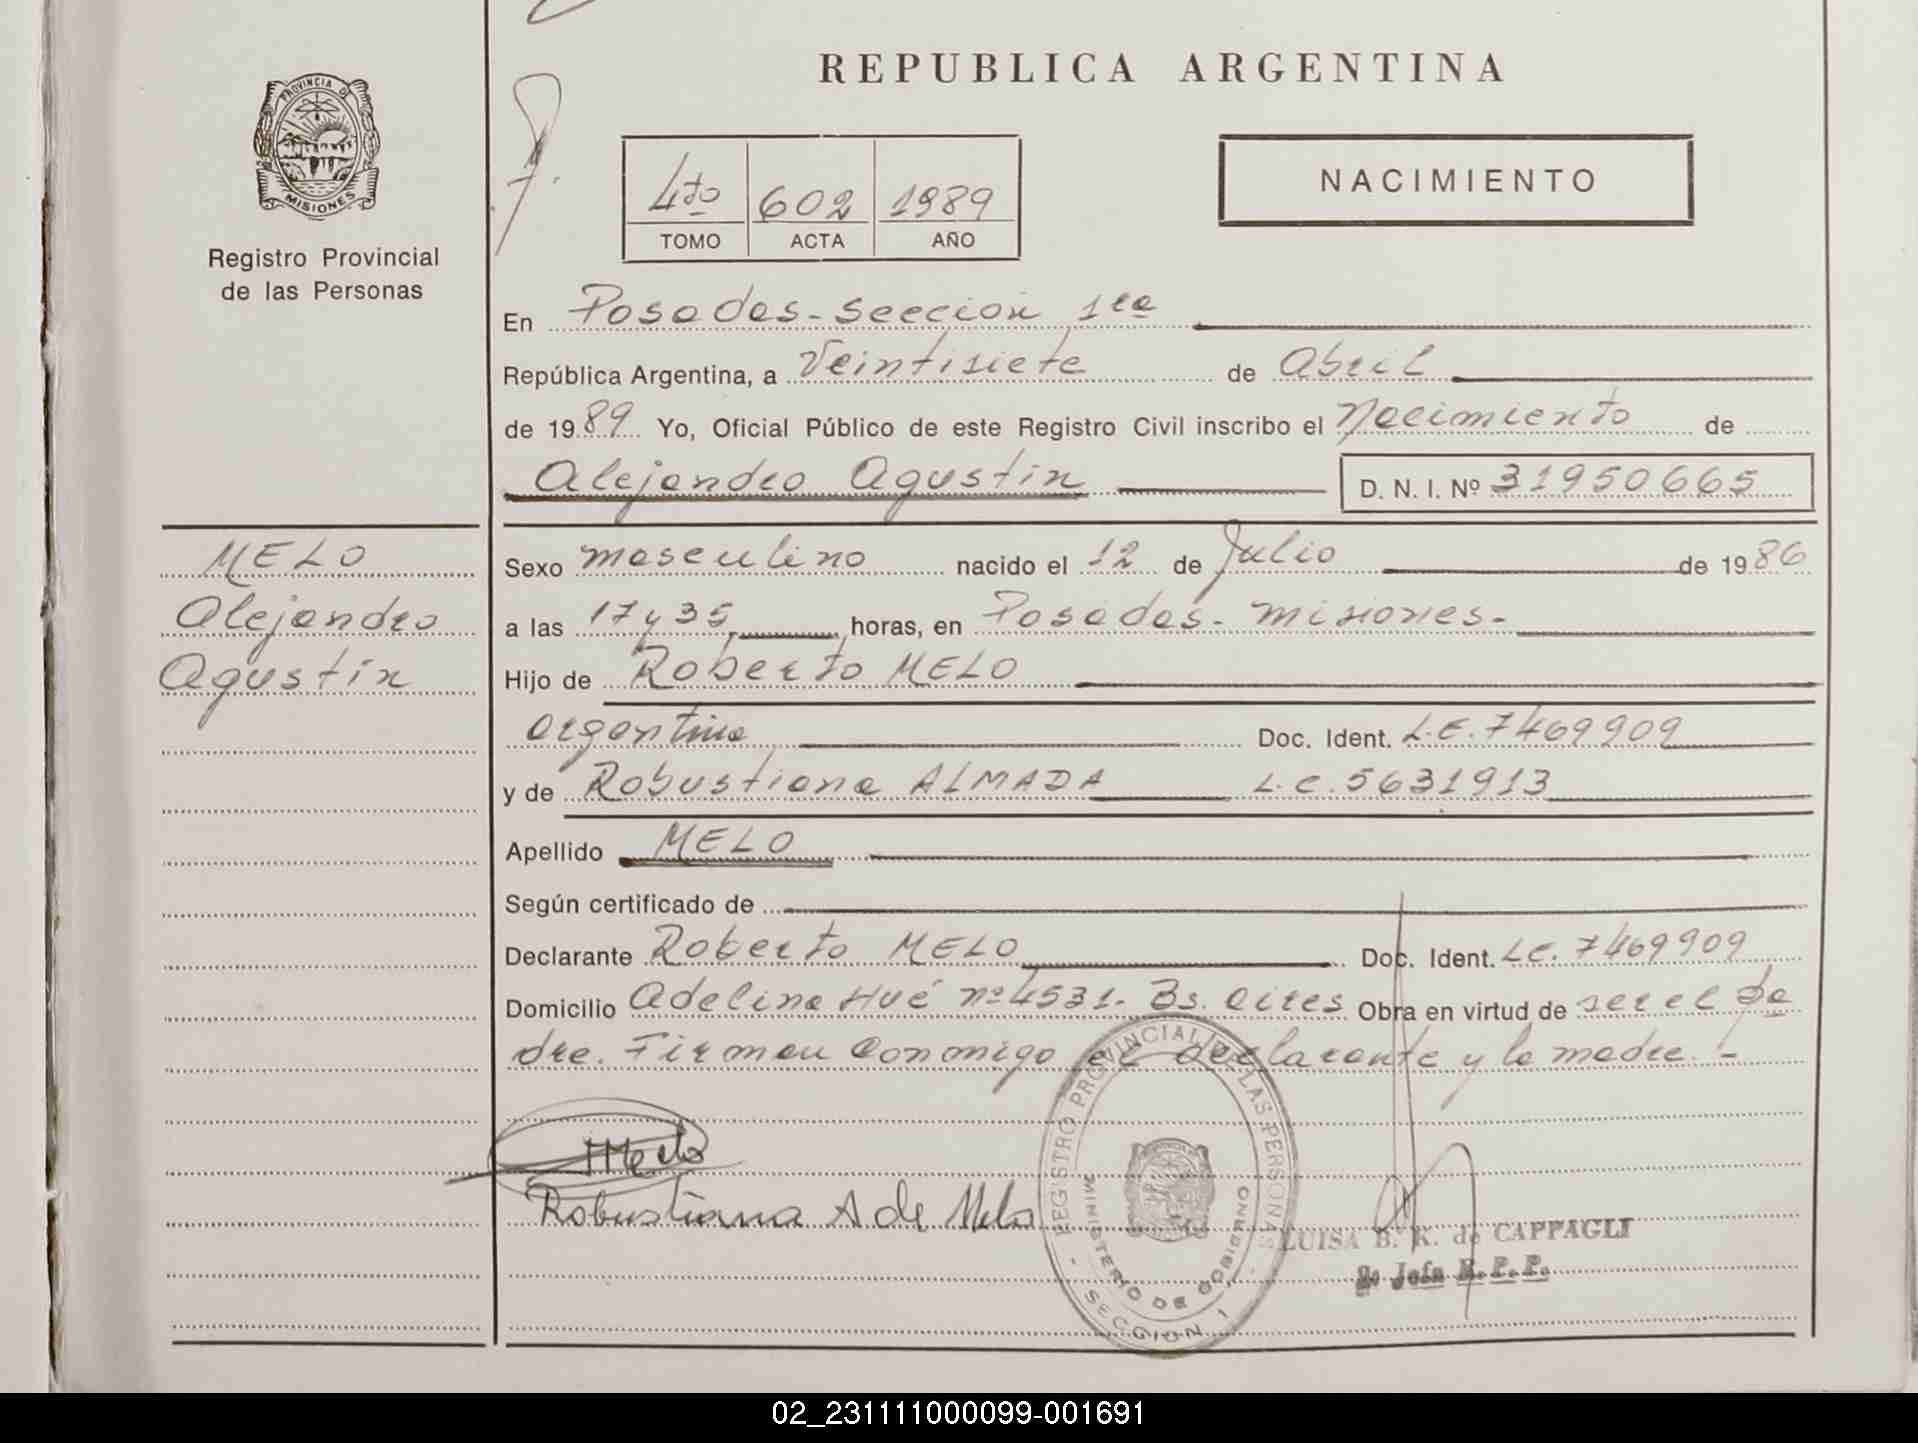 REPUBLICA ARGENTINA
PROVINCIA DE
MISIONES
Registro Provincial
de las Personas
4to 602 1989
TOMO ACTA AÑO
NACIMIENTO
En Posadas - Sección 1ra
República Argentina, a Veintisiete de Abril
de 1989 Yo, Oficial Público de este Registro Civil inscribo el Nacimiento de
Alejandro Agustín D. N. I. Nº 31950665
MELO
Alejandro
Agustín
Sexo masculino nacido el 12 de Julio de 1986
a las 17 y 35 horas, en Posadas - Misiones -
Hijo de Roberto MELO
argentino Doc. Ident. L.E. 7469909
y de Robustiana ALMADA L.C. 5631913
Apellido MELO
Según certificado de
Declarante Roberto MELO Doc. Ident. L.E. 7469909
Domicilio Adelina Hué nº 4531. Bs. Aires Obra en virtud de ser el pa
dre. Firman conmigo el declarante y la madre. -
Melo
Robustiana A de Melo
REGISTRO PROVINCIAL DE LAS PERSONAS
MINISTERIO DE GOBIERNO
- SECCION 1 -
LUISA B. K. de CAPPAGLI
2º Jefa R.P.P.
02_231111000099-001691